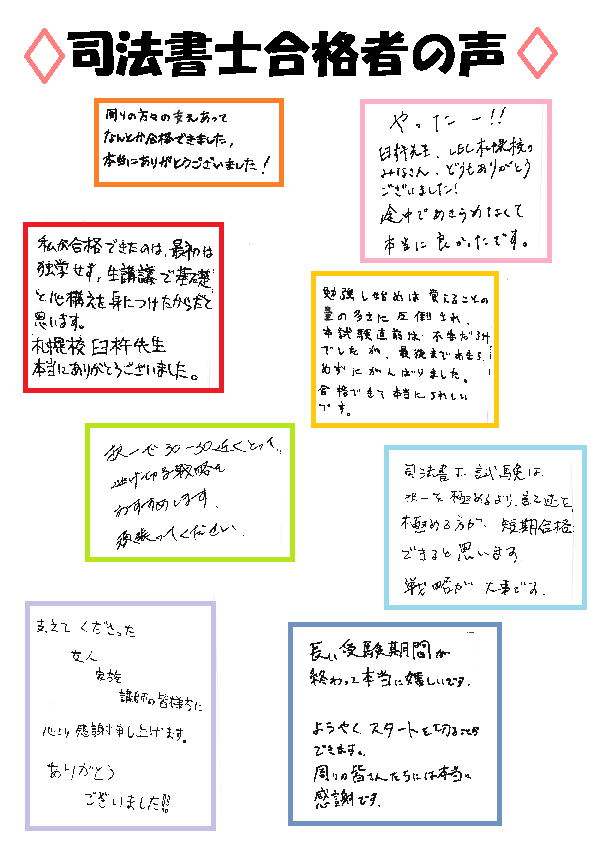 司法書士合格者の声
周りの方々の支えあって
なんとか合格できました。
本当にありがとうございました!
やったー!!
臼杵先生、LEC札幌校の
みなさん、どうもありがとう
ございました!
途中であきらめなくて
本当に良かったです。
私が合格できたのは、最初は
独学せず、生講議で基礎
と心構えを身につけたからだと
思います。
札幌校 臼杵先生
本当にありがとうございました。
勉強し始めは覚えることの
量の多さに圧倒され、
本試験直前は不安だらけ
でしたが、最後まであきら
めずにがんばりました。
合格できて本当にうれしい
です。
択一で30-30近くとって、
逃げ切る戦略を
おすすめします。
頑張ってください。
司法書士試験は
択一を極めるより、記述を
極める方が、短期合格
できると思います
戦略が大事です。
支えてくださった
友人
家族
講師の皆様方に
心より感謝申し上げます。
ありがとう
ございました!!
長い受験期間が
終わって本当に嬉しいです。
ようやくスタートを切ることが
できます。
周りの皆さんたちには本当に
感謝です。